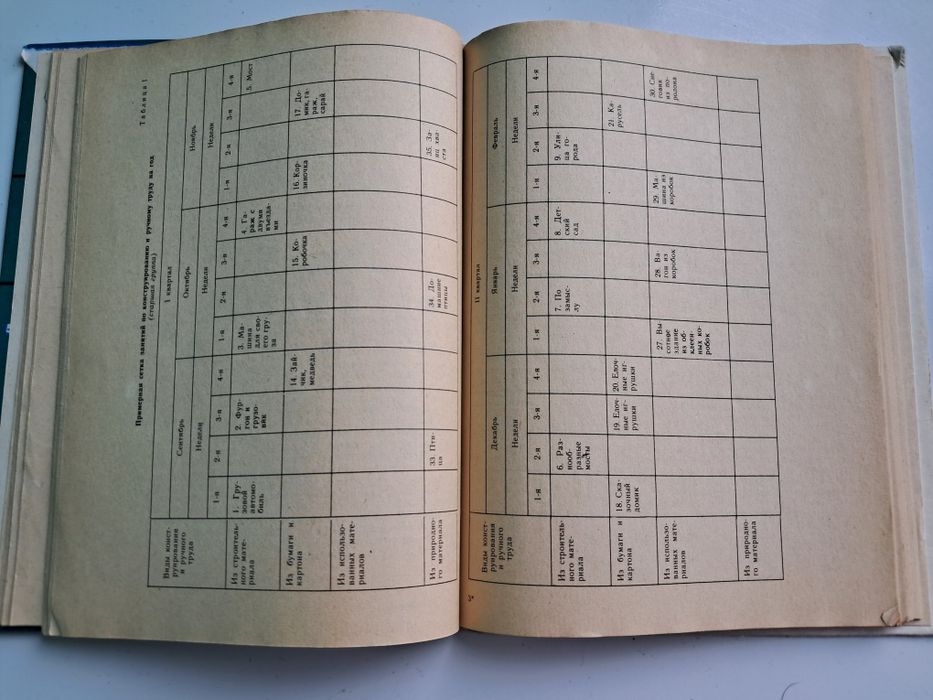 Таблица 1
Примерная сетка занятий по конструированию и ручному труду на год
(старшая группа)
Виды конст-
руирования
и ручного
труда
I квартал
Сентябрь
Октябрь
Ноябрь
Недели
Недели
Недели
1-я
2-я
3-я
4-я
1-я
2-я
3-я
4-я
1-я
2-я
3-я
4-я
Из строитель-
ного мате-
риала
1. Гру-
зовой
автомо-
биль
2. Фур-
гон и
грузо-
вик
3. Ма-
шина
для сво-
его гру-
за
4. Га-
раж с
двумя
въезда-
ми
5. Мост
Из бумаги и
картона
14. Зай-
чик,
медведь
15. Ко-
робочка
16. Кор-
зиночка
17. До-
мик, га-
раж,
сарай
Из использо-
ванных мате-
риалов
Из природно-
го материала
33. Пти-
ца
34. До-
машние
птицы
35. За-
яц хва-
ста
3*
Виды конст-
руирования
и ручного
труда
II квартал
Декабрь
Январь
Февраль
Недели
Недели
Недели
1-я
2-я
3-я
4-я
1-я
2-я
3-я
4-я
1-я
2-я
3-я
4-я
Из строитель-
ного мате-
риала
6. Раз-
нооб-
разные
мосты
7. По
замыс-
лу
8. Дет-
ский
сад
9. Ули-
ца го-
рода
Из бумаги и
картона
18. Ска-
зочный
домик
19. Елоч-
ные иг-
рушки
20. Елоч-
ные иг-
рушки
21. Ка-
русель
Из использо-
ванных мате-
риалов
27. Вы-
сотное
здание
из об-
клеен-
ных ко-
робок
28. Ва-
гон из
коробок
29. Ма-
шина из
коробок
30. Сне-
говик
из по-
ролона
Из природно-
го материала